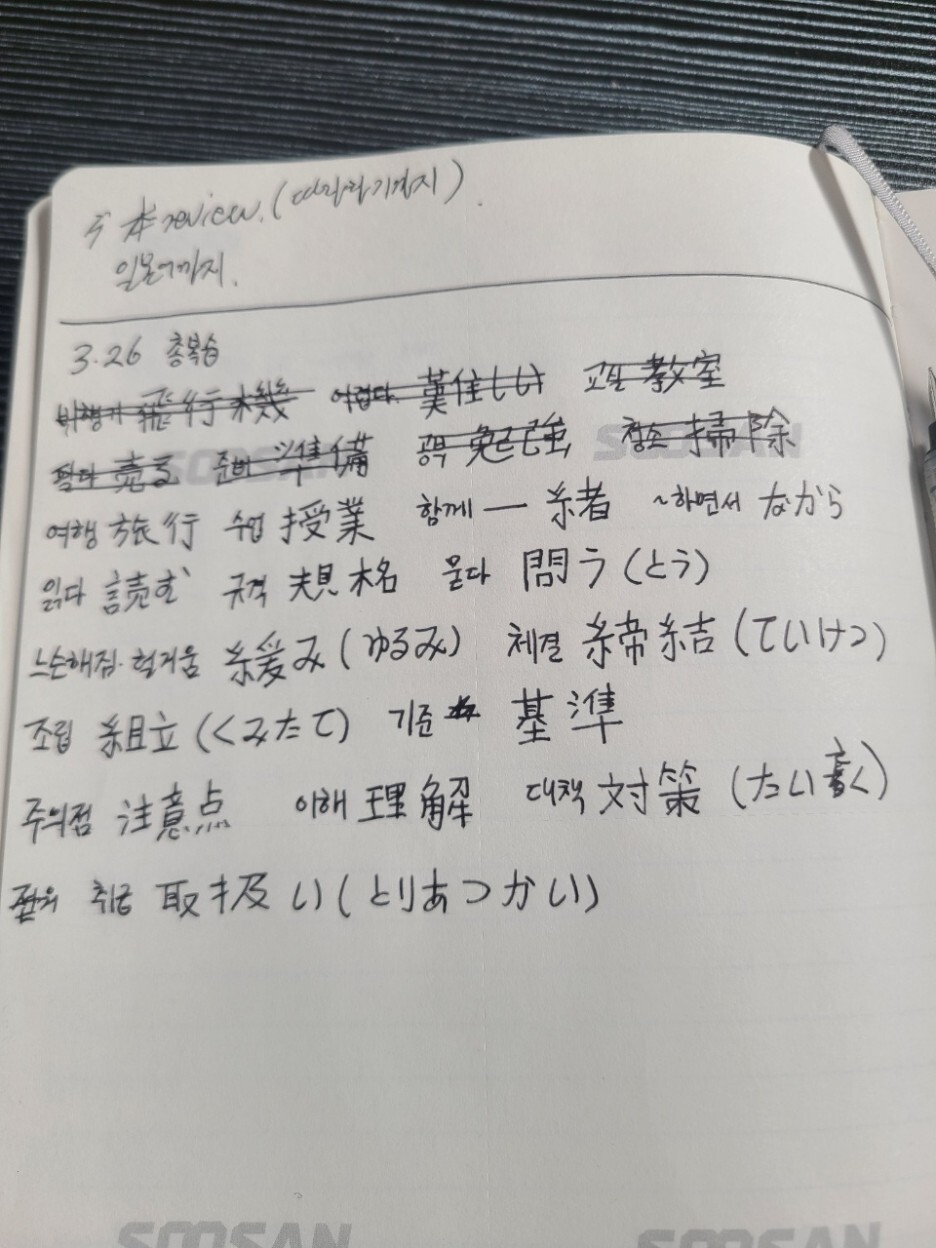 本 review. (따라하기까지).
일본어까지.
3.26 총복습
비행기 飛行機 어렵다 難しい 교실 教室
팔다 売る 준비 準備 공부 勉強 청소 掃除
여행 旅行 수업 授業 함께 一緒 ~하면서 ながら
읽다 読む 규격 規格 묻다 問う (とう)
느슨해짐·헐거움 緩み (ゆるみ) 체결 締結 (ていけつ)
조립 組立 (くみたて) 기준 基準
주의점 注意点 이해 理解 대책 対策 (たい書く)
취급 取扱い (とりあつかい)
SOOSAN SOOSAN